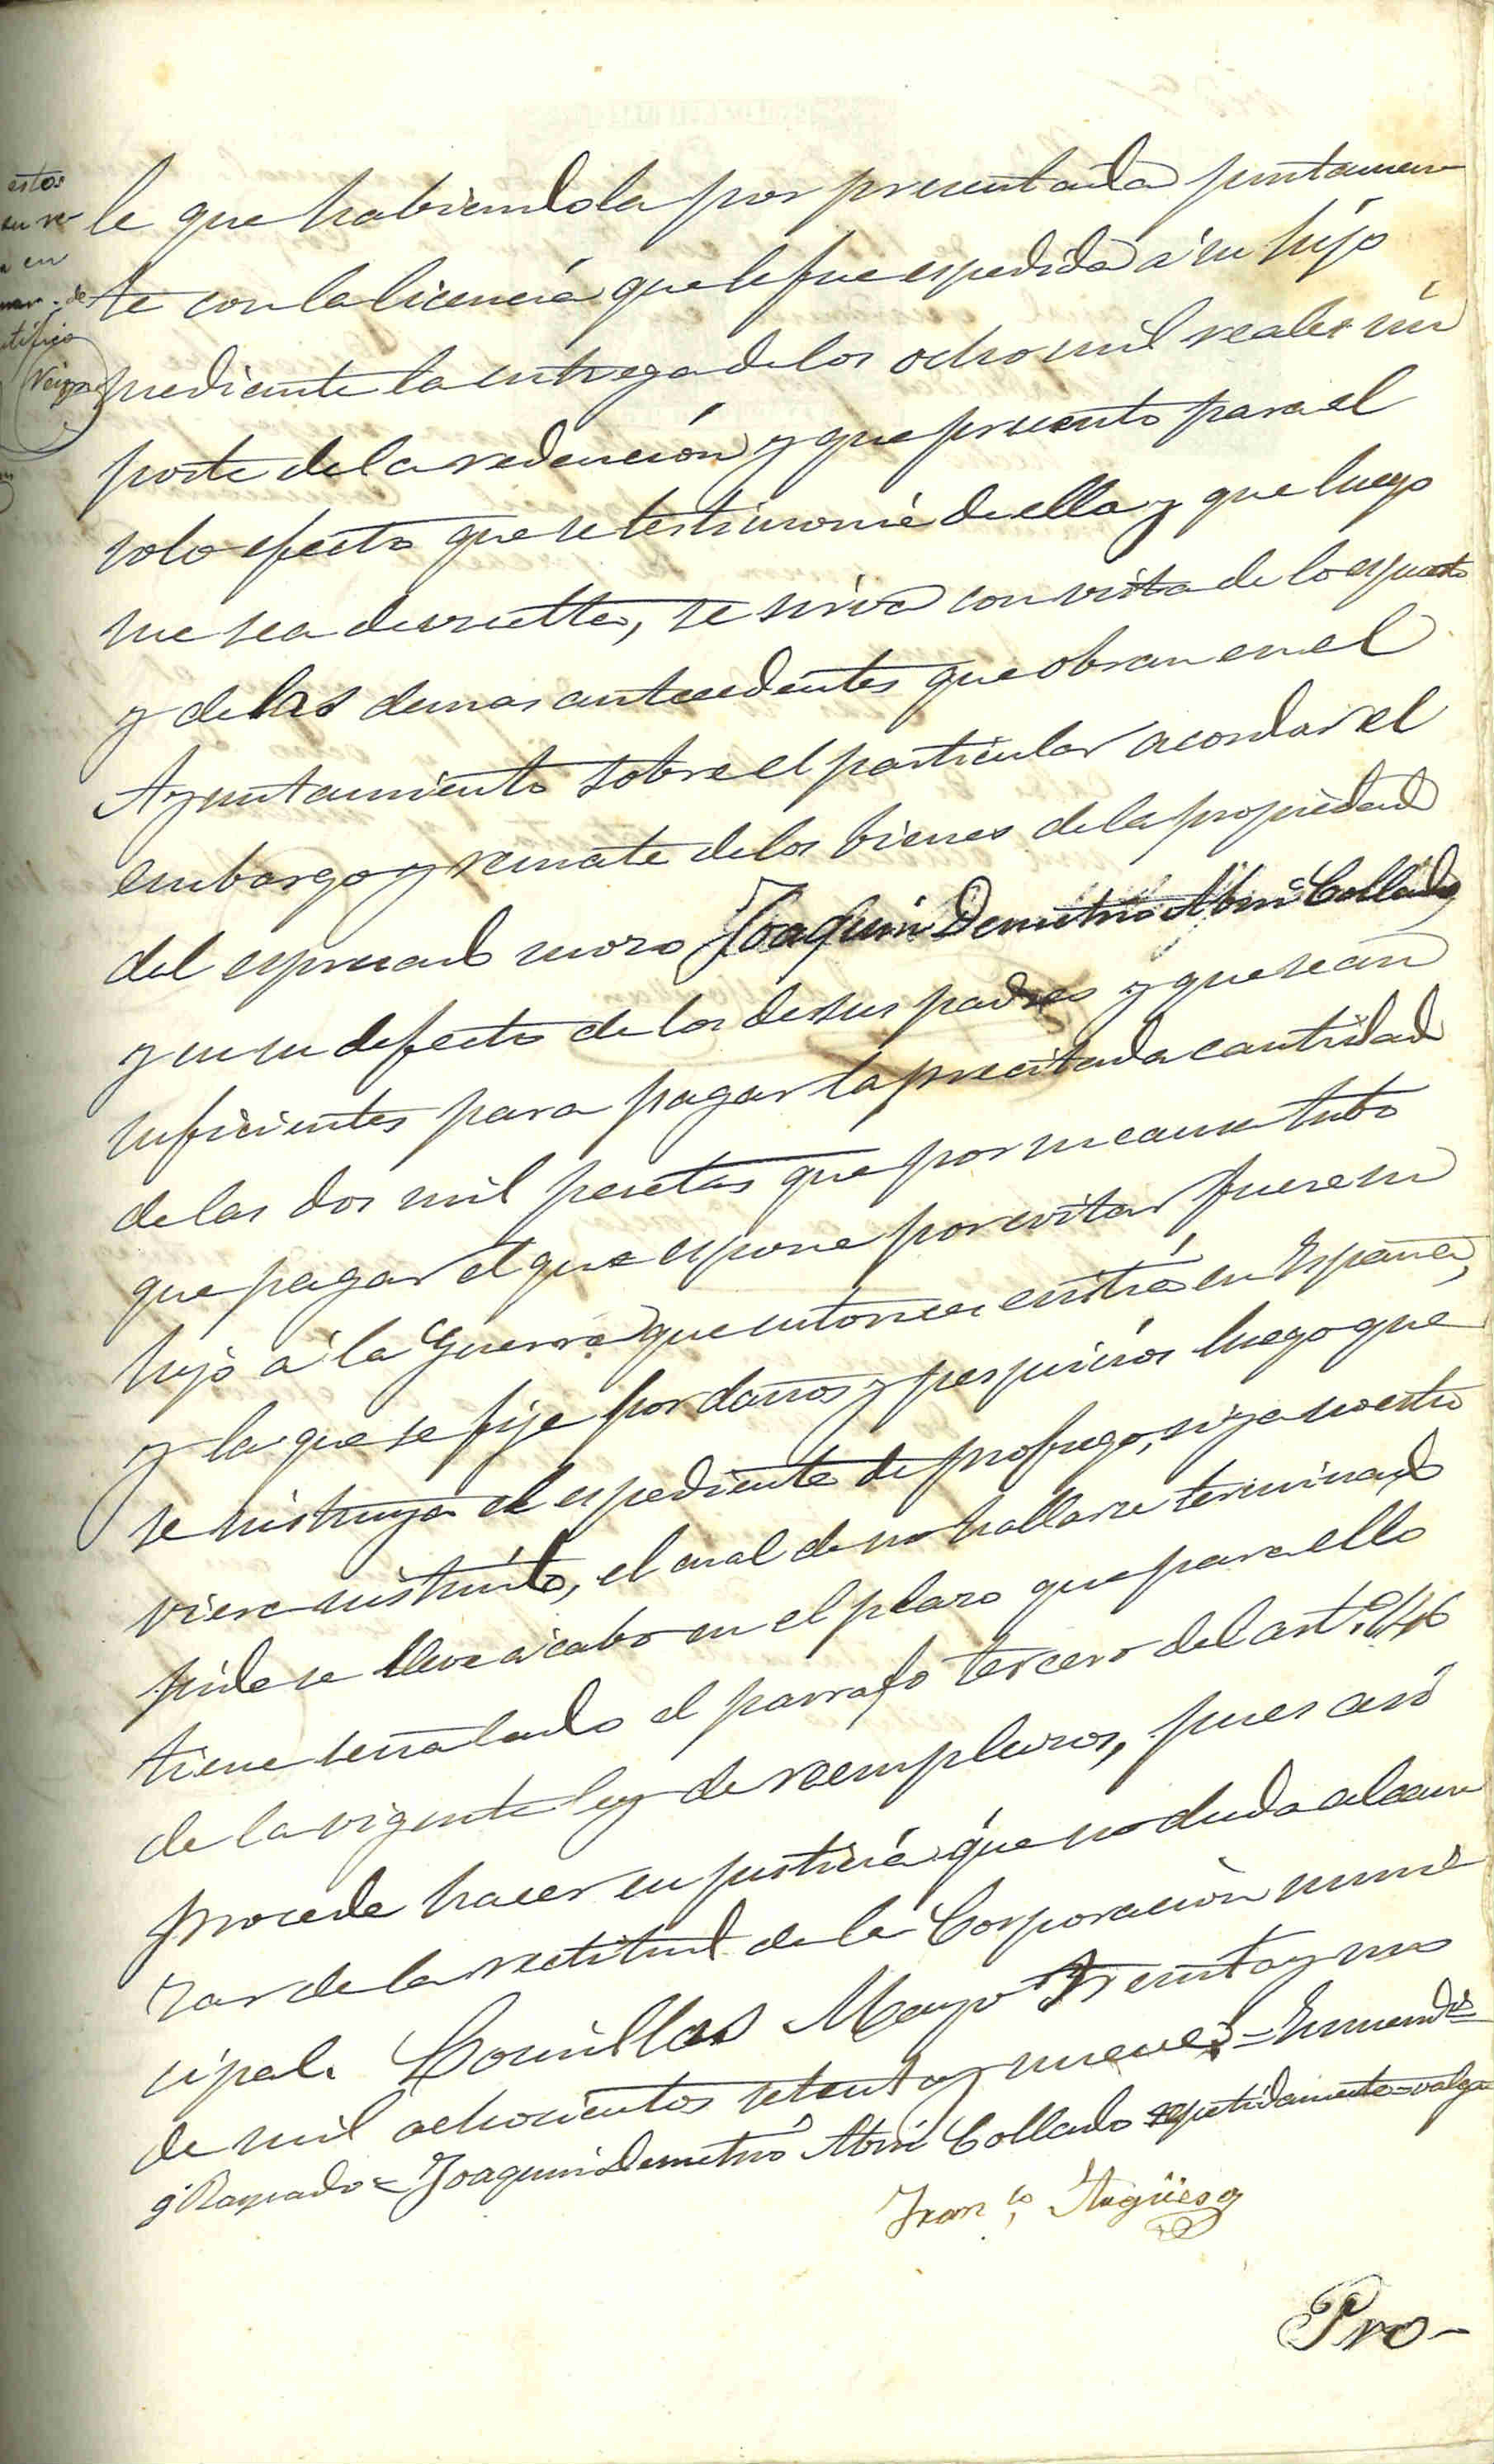 estos
en
de
le que habiendola por presentada juntamen
te con la licencia que le fue espedida á su hijo
mediante la entrega de los ocho mil reales im
porte de la redencion y que presento para el
solo efecto que se testimonie de ella y que luego
me sea devuelta, se sirva con vista de lo espuesto
y de los demas antecedentes que obran en el
Ayuntamiento sobre el particular acordar el
embargo y remate de los bienes de la propiedad
del espresado mozo Joaquin Demetrio Abin Collado
y en su defecto de los de sus padres y que sean
suficientes para pagar la precitada cantidad
de las dos mil pesetas que por su causa tubo
que pagar el que espone por evitar fuere su
hijo á la Guerra que entonces existia en España,
y la que se fije por daños y perjuicios luego que
se instruya el espediente de profugo, si ya no estu
viere instruido, el cual de no hallarse terminado
pide se lleve á cabo en el plazo que para ello
tiene señalado el parrafo tercero del artº. 146
de la vigente ley de reemplazos, pues asi
procede hacer en justicia que no duda alcan
zar de la rectitud de la Corporacion muni
cipal. Comillas Mayo treinta y uno
de mil ochocientos setenta y nueve = Enmendº
y Raspado = Joaquin Demetrio Abin Collado repetidamente = valga
Franco. Itugüesoz
Pro-